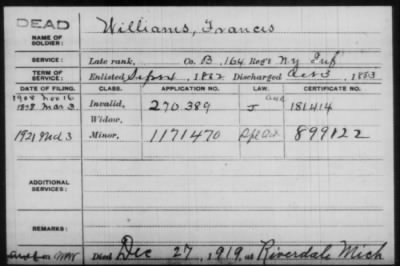 DEAD
NAME OF SOLDIER: Williams, Francis
SERVICE: Late rank, Co. B, 164 Reg't N.Y. Inf
TERM OF SERVICE: Enlisted 1862 Discharged Oct 3, 1863
DATE OF FILING. CLASS. APPLICATION NO. LAW. CERTIFICATE NO.
1908 Nov 16
Mar 3 Invalid, 270389 J 181414
Widow,
1921 Mch 3 Minor, 1171470 899122
ADDITIONAL SERVICES:
REMARKS:
Died Dec 27, 1919, at Riverdale Mich